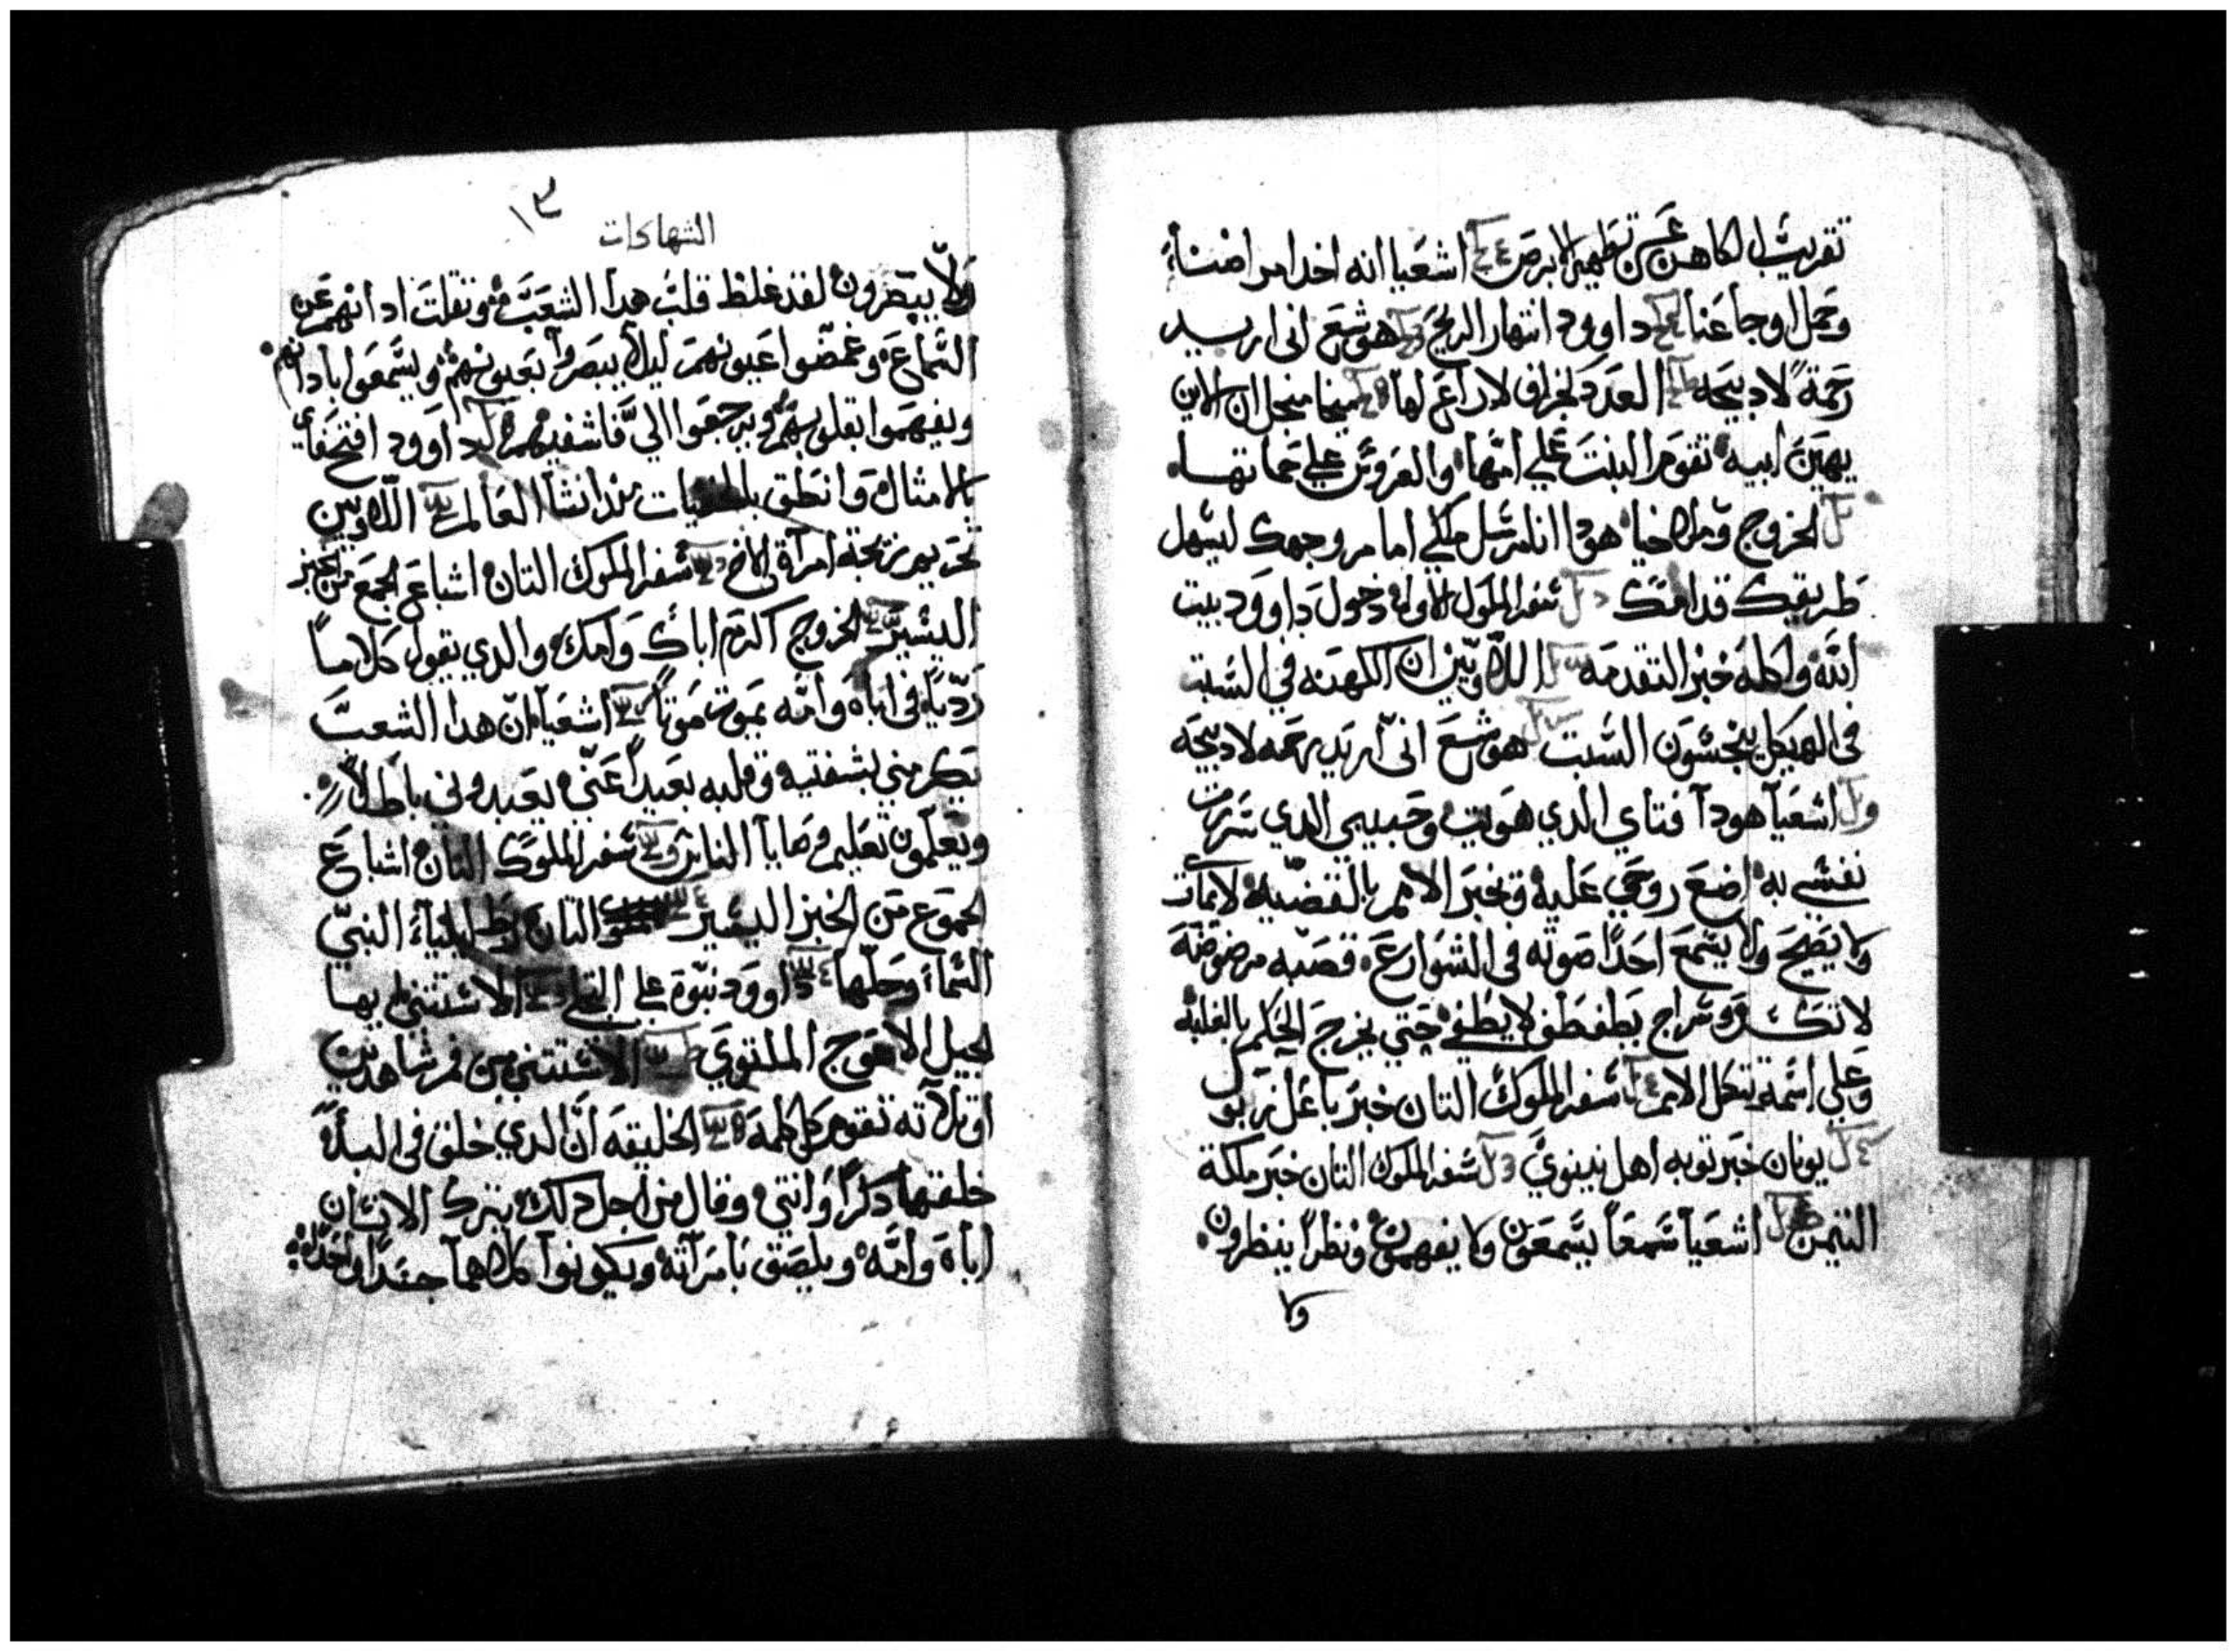 تقريب الكاهن عن تطهير الابرص اشعيا انه اخد امراضنا
وحمل اوجاعنا داوود انتهار الريح هوشع اني اريد
رحمة لا دبيحه العدد لخراف لا راع لها ميخا منجل ان الابن
يهين ابيه تقوم البنت علي امها والعروس علي حماتها
الخروج وملاخيا هودا انا مرسل ملكي امام وجهك ليسهل
طريقك قدامك سفر الملوك الاوله دخول داوود بيت
الله واكله خبز التقدمه اللاويين ان الكهنه في السبت
في الهيكل ينجسون السبت هوشع اني اريد رحمه لا دبيحه
اشعيا هودا فتاي الدي هويت وحبيبي الدي سررت
نفسي به اضع روحي عليه وتخبر الامم بالقضيه لا يمارت
ولا يصيح ولا يسمع احدا صوته في الشوارع قصبه مرضوضة
لا تكسر وسراج يطفطف لا يطفي حتي يخرج الحكم بالغلبة
وعلي اسمه تتكل الامم سفر الملوك التان خبر باعل زبول
يونان خبر توبه اهل نينوي سفر الملوك التان خبر ملكة
التيمن اشعيا سمعا يسمعون ولا يفهمون ونظرا ينظرون
ولا
١٣
الشهادات
ولا يبصرون لقد غلظ قلب هدا الشعب وتقلت ادانهم عن
السماع وغمضوا عيونهم ليلا يبصروا بعيونهم ويسمعوا بادانهم
ويفهموا بقلوبهم ويرجعوا الي فاشفيهم داوود افتح فاي
بالامثال وانطق بالخفيات مند انشا العالم اللاويين
تحريم زيجة امراة الاخ سفر الملوك التان اشباع الجمع من الخبز
اليسير الخروج اكرم اباك وامك والدي يقول كلاما
رديا في اباه وامه يموت موتا اشعيا ان هدا الشعب
يكرمني بشفتيه وقلبه بعيدا عني يعبدوني باطلا
ويعلمون تعليم وصايا الناس سفر الملوك التان اشباع
الجموع من الخبز اليسير التان ربط ايلياء النبي
السماء وحلها داوود نبوة علي الاستتني بها
الجيل الاعوج الملتوي الاستتني من فم شاهدين
او تلاته تقوم كل كلمة الخليقه ان الدي خلق في البدء
خلقهما دكرا وانتي وقال من اجل دلك يترك الانسان
اباه وامه ويلصق بامراته ويكونوا كلاهما جسدا واحدا